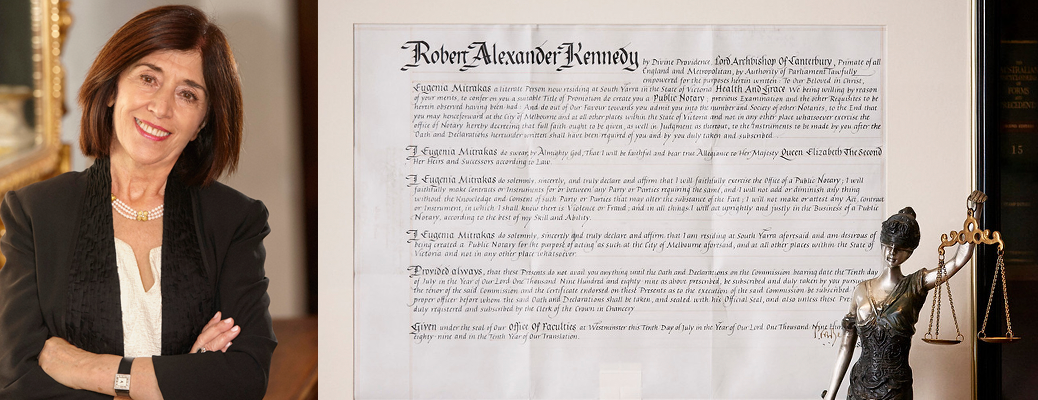 Robert Alexander Kennedy by Divine Providence, Lord Archbishop Of Canterbury, Primate of all
England and Metropolitan, by Authority of Parliament lawfully
empowered for the purposes herein written: To Our Beloved in Christ,
Eugenia Mitrakas a literate Person now residing at South Yarra in the State of Victoria Health And Grace We being willing by reason
of your merits, to confer on you a suitable Title of Promotion do create you a Public Notary; previous Examination and the other Requisites to be
herein observed having been had: And do out of Our Favour towards you admit you into the number and Society of other Notaries, to the End that
you may henceforward at the City of Melbourne and at all other places within the State of Victoria and not in any other place whatsoever exercise the
office of Notary hereby decreeing that full faith ought to be given, as well in Judgment as thereout, to the Instruments to be made by you after the
Oath and Declarations hereunder written shall have been required of you and by you duly taken and subscribed
I Eugenia Mitrakas do swear, by Almighty God, That I will be faithful and bear true Allegiance to Her Majesty Queen Elizabeth The Second
Her Heirs and Successors according to Law.
I Eugenia Mitrakas do solemnly, sincerely, and truly declare and affirm that I will faithfully exercise the Office of a Public Notary; I will
faithfully make Contracts or Instruments for or between any Party or Parties requiring the same, and I will not add or diminish any thing
without the Knowledge and Consent of such Party or Parties that may alter the substance of the Fact; I will not make or attest any Act, Contract
or Instrument, in which I shall know there is Violence or Fraud; and in all things I will act uprightly and justly in the Business of a Public
Notary, according to the best of my Skill and Ability.
I Eugenia Mitrakas do solemnly, sincerely and truly declare and affirm, that I am residing at South Yarra aforesaid and am desirous of
being created a Public Notary for the purpose of acting as such at the City of Melbourne aforesaid, and at all other places within the State of
Victoria and not in any other place whatsoever
Provided always, that these Presents do not avail you anything until the Oath and Declarations on the Commission bearing date the Tenth day
of July in the Year of Our Lord One Thousand Nine Hundred and eighty-nine as above prescribed, be subscribed and duly taken by you pursu
the tenor of the said Commission and the Certificate endorsed on these Presents as to the execution of the said Commission be subscribed
proper officer before whom the said Oath and Declarations shall be taken, and sealed with his Official Seal, and also unless these Pre
duly registered and subscribed by the Clerk of the Crown in Chancery
Given under the seal of our Office Of Faculties at Westminster this Tenth Day of July in the Year of Our Lord One Thousand Nine Hun
eighty-nine and in the Tenth Year of Our Translation.
AUSTRALIAN
FORMS
15